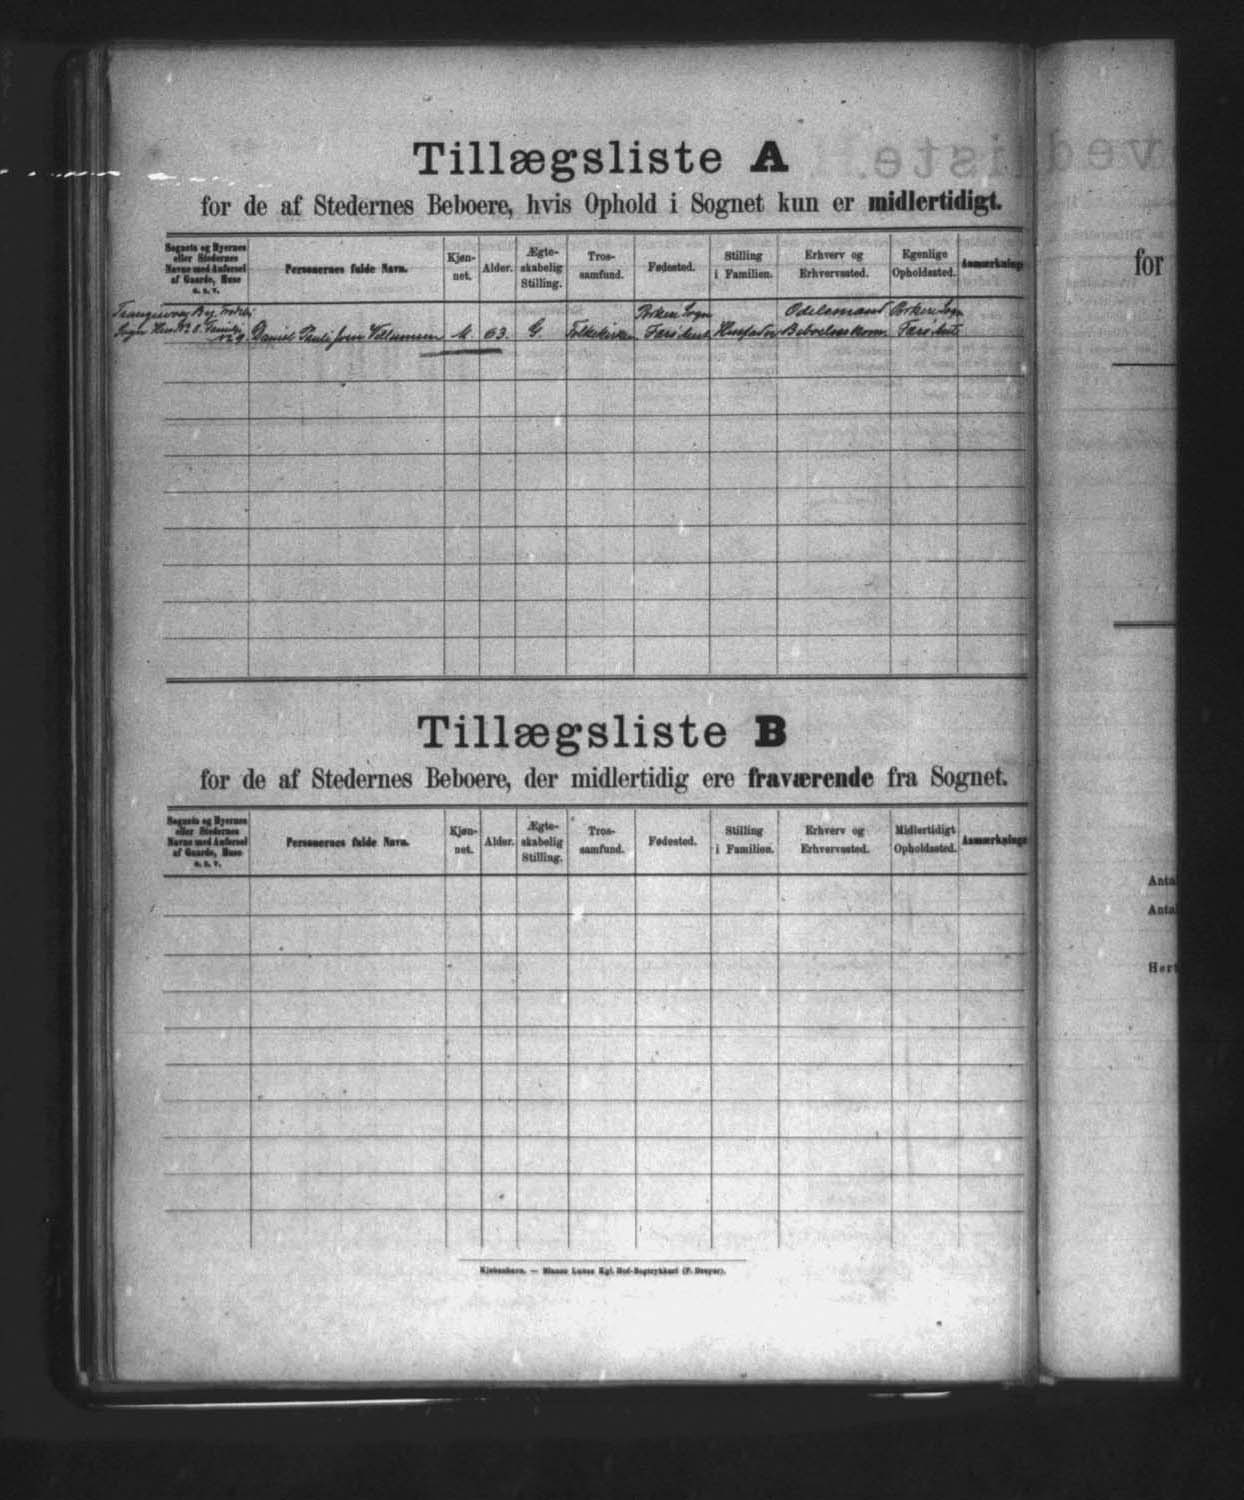 Tillægsliste A
for de af Stedernes Beboere, hvis Ophold i Sognet kun er midlertidigt.
Sognets og Byernes
eller Stedernes
Navne med Anførsel
af Gaarde, Huse
o. s. v.
Personernes fulde Navn.
Kjøn-
net.
Alder.
Ægte-
skabelig
Stilling.
Tros-
samfund.
Fødested.
Stilling
i Familien.
Erhverv og
Erhvervssted.
Egenlige
Opholdssted.
Anmærkninge
By
Sogn Hus No 8.
Daniel Pauli Joen Villumsen
M.
63.
G.
Folkekirken
Porkeri Sogn
Færø Amt
Husfader
Odelsmand
Porkeri Sogn
Færø Amt
Tillægsliste B
for de af Stedernes Beboere, der midlertidig ere fraværende fra Sognet.
Sognets og Byernes
eller Stedernes
Navne med Anførsel
af Gaarde, Huse
o. s. v.
Personernes fulde Navn.
Kjøn-
net.
Alder.
Ægte-
skabelig
Stilling.
Tros-
samfund.
Fødested.
Stilling
i Familien.
Erhverv og
Erhvervssted.
Midlertidigt
Opholdssted.
Anmærkninge
Kjøbenhavn. — Bianco Lunos Kgl. Hof-Bogtrykkeri (F. Dreyer).
for
Anta
Anta
Hert